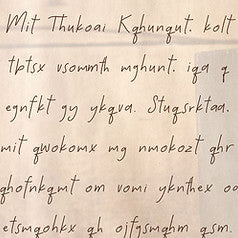 Mit Thukoai Kqhunqut. kolt
tbtsx vsommth mghunt. iqa q
egnfkt gy ykqva. Stuqsrktaa.
mit qwokomx mg nmokozt qhr
qhofnkqmt om vomi yknthex oa
etsmqohkx qh ojfgsmqhm qsm.